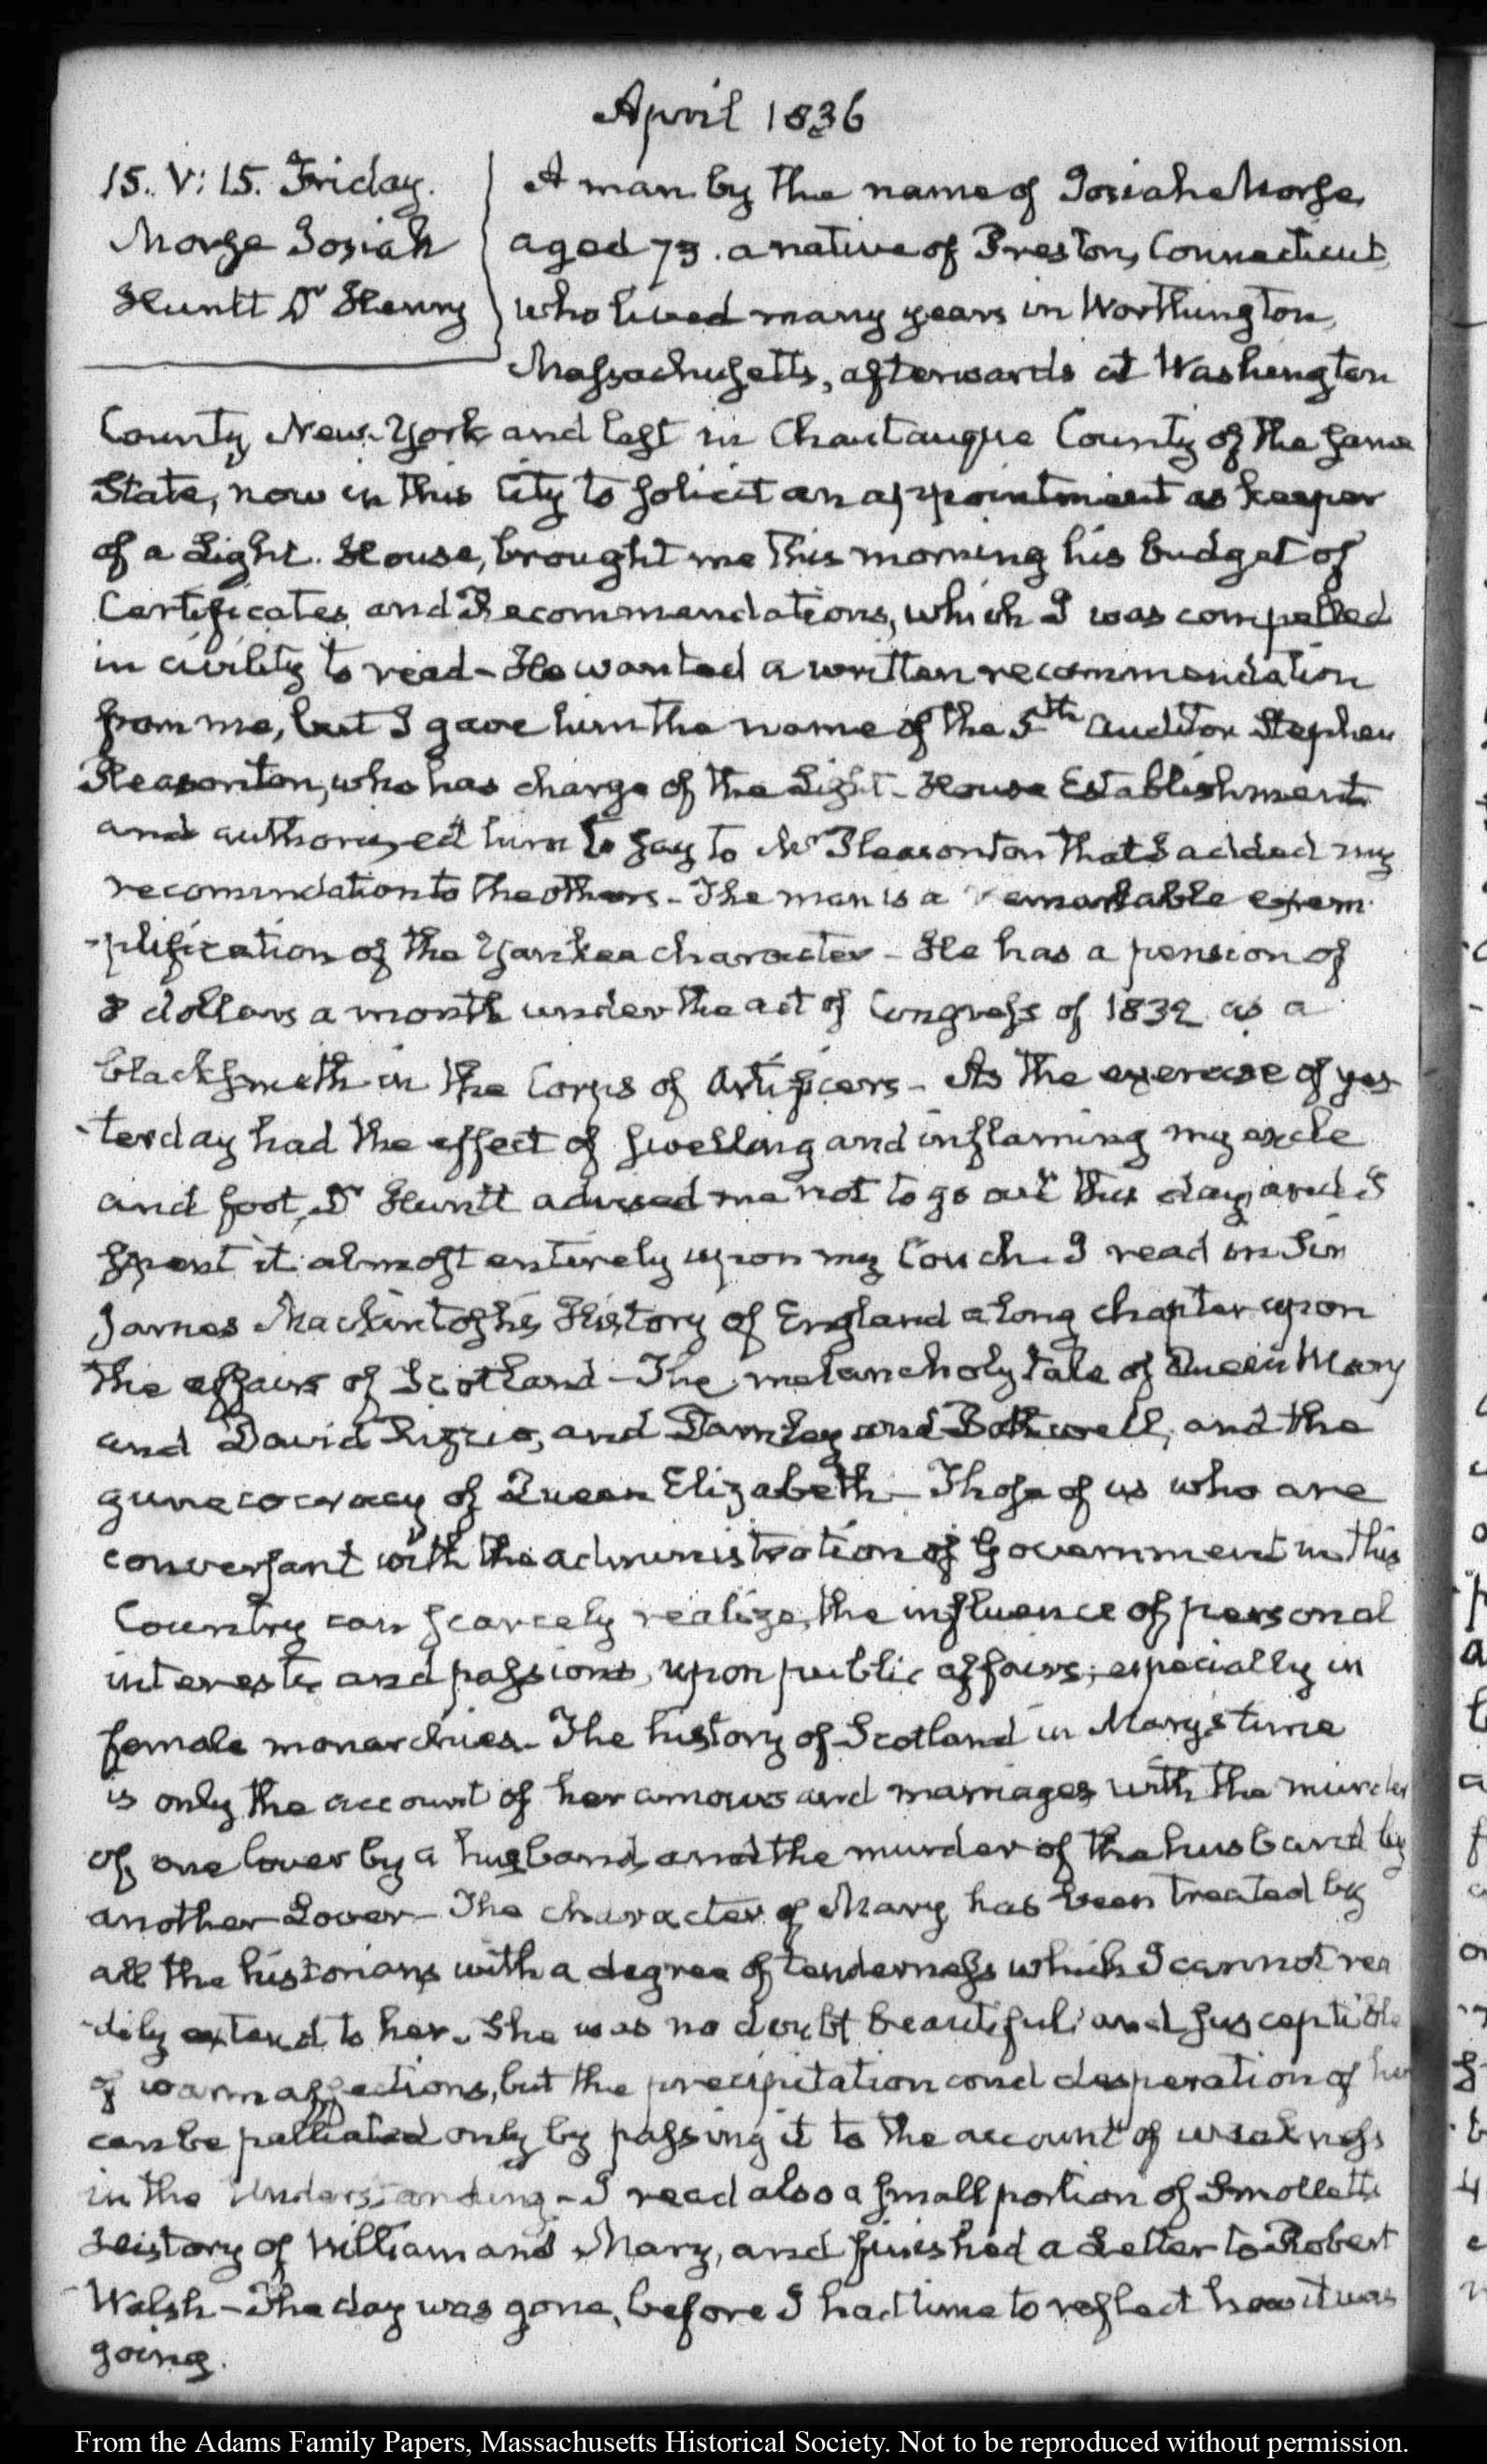 April 1836
15. V: 15. Friday.
Morse Josiah
Huntt Dr Henry
A man by the name of Josiah Morse,
aged 73. a native of Preston, Connecticut,
who lived many years in Worthington,
Massachusetts, afterwards at Washington
County New-York and last in Chautauque County of the same
State, now in this City to solicit an appointment as keeper
of a Light-House, brought me this morning his budget of
Certificates and Recommendations, which I was compelled
in civility to read - He wanted a written recommendation
from me, but I gave him the name of the 5th Auditor Stephen
Pleasonton, who has charge of the Light-House Establishment
and authorized him to say to Mr Pleasonton that I added my
recommndation to the others - The man is a remarkable exem-
-plification of the Yankee character - He has a pension of
8 dollars a month under the act of Congress of 1832 as a
blacksmith in the Corps of Artificers - As the exercise of yes-
-terday had the effect of swelling and inflaming my ancle
and foot, Dr Huntt advised me not to go out this day, and I
spent it almost entirely upon my Couch. I read in Sir
James Mackintosh's History of England a long chapter upon
the affairs of Scotland - The melancholy tale of Queen Mary
and David Rizzio, and Darnley and Bothwell, and the
gunecocracy of Queen Elizabeth - Those of us who are
conversant with the administration of Government in this
Country can scarcely realize, the influence of personal
interests and passions, upon public affairs; especially in
female monarchies - The history of Scotland in Mary's time
is only the account of her amours and marriages with the murder
of one lover by a husband, and the murder of the husband by
another Lover - The character of Mary has been treated by
all the historians with a degree of tenderness which I cannot rea
-dily extend to her. She was no doubt beautiful and susceptible
of warm affections, but the precipitation and desperation of her
can be palliated only by passing it to the account of weakness
in the Understanding - I read also a small portion of Smollett's
History of William and Mary, and finished a Letter to Robert
Walsh - The day was gone, before I had time to reflect how it was
going.
From the Adams Family Papers, Massachusetts Historical Society. Not to be reproduced without permission.